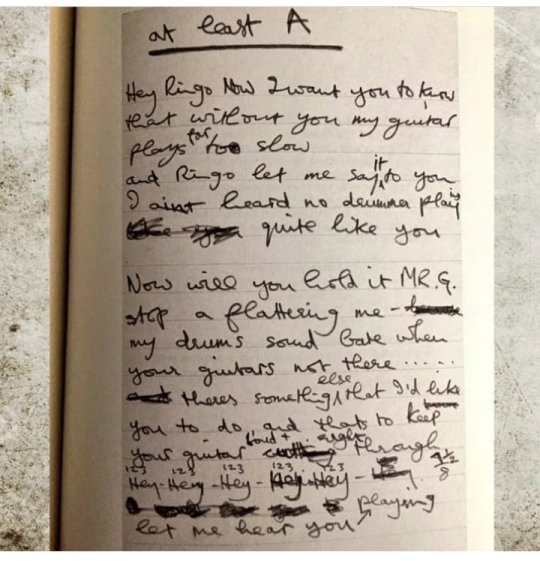 at least A
Hey Ringo Now I want you to know
that without you my guitar
plays far too slow
and Ringo let me say it to you
I ain't heard no drummer play
quite like you
Now will you hold it MR.G.
stop a flattering me
my drums sound bare when
your guitars not there ......
theres something else that I'd like
you to do, and thats to keep
your guitar loud + through
123 123 123 123 123
Hey-Hey-Hey-Hey-Hey-
let me hear you playing